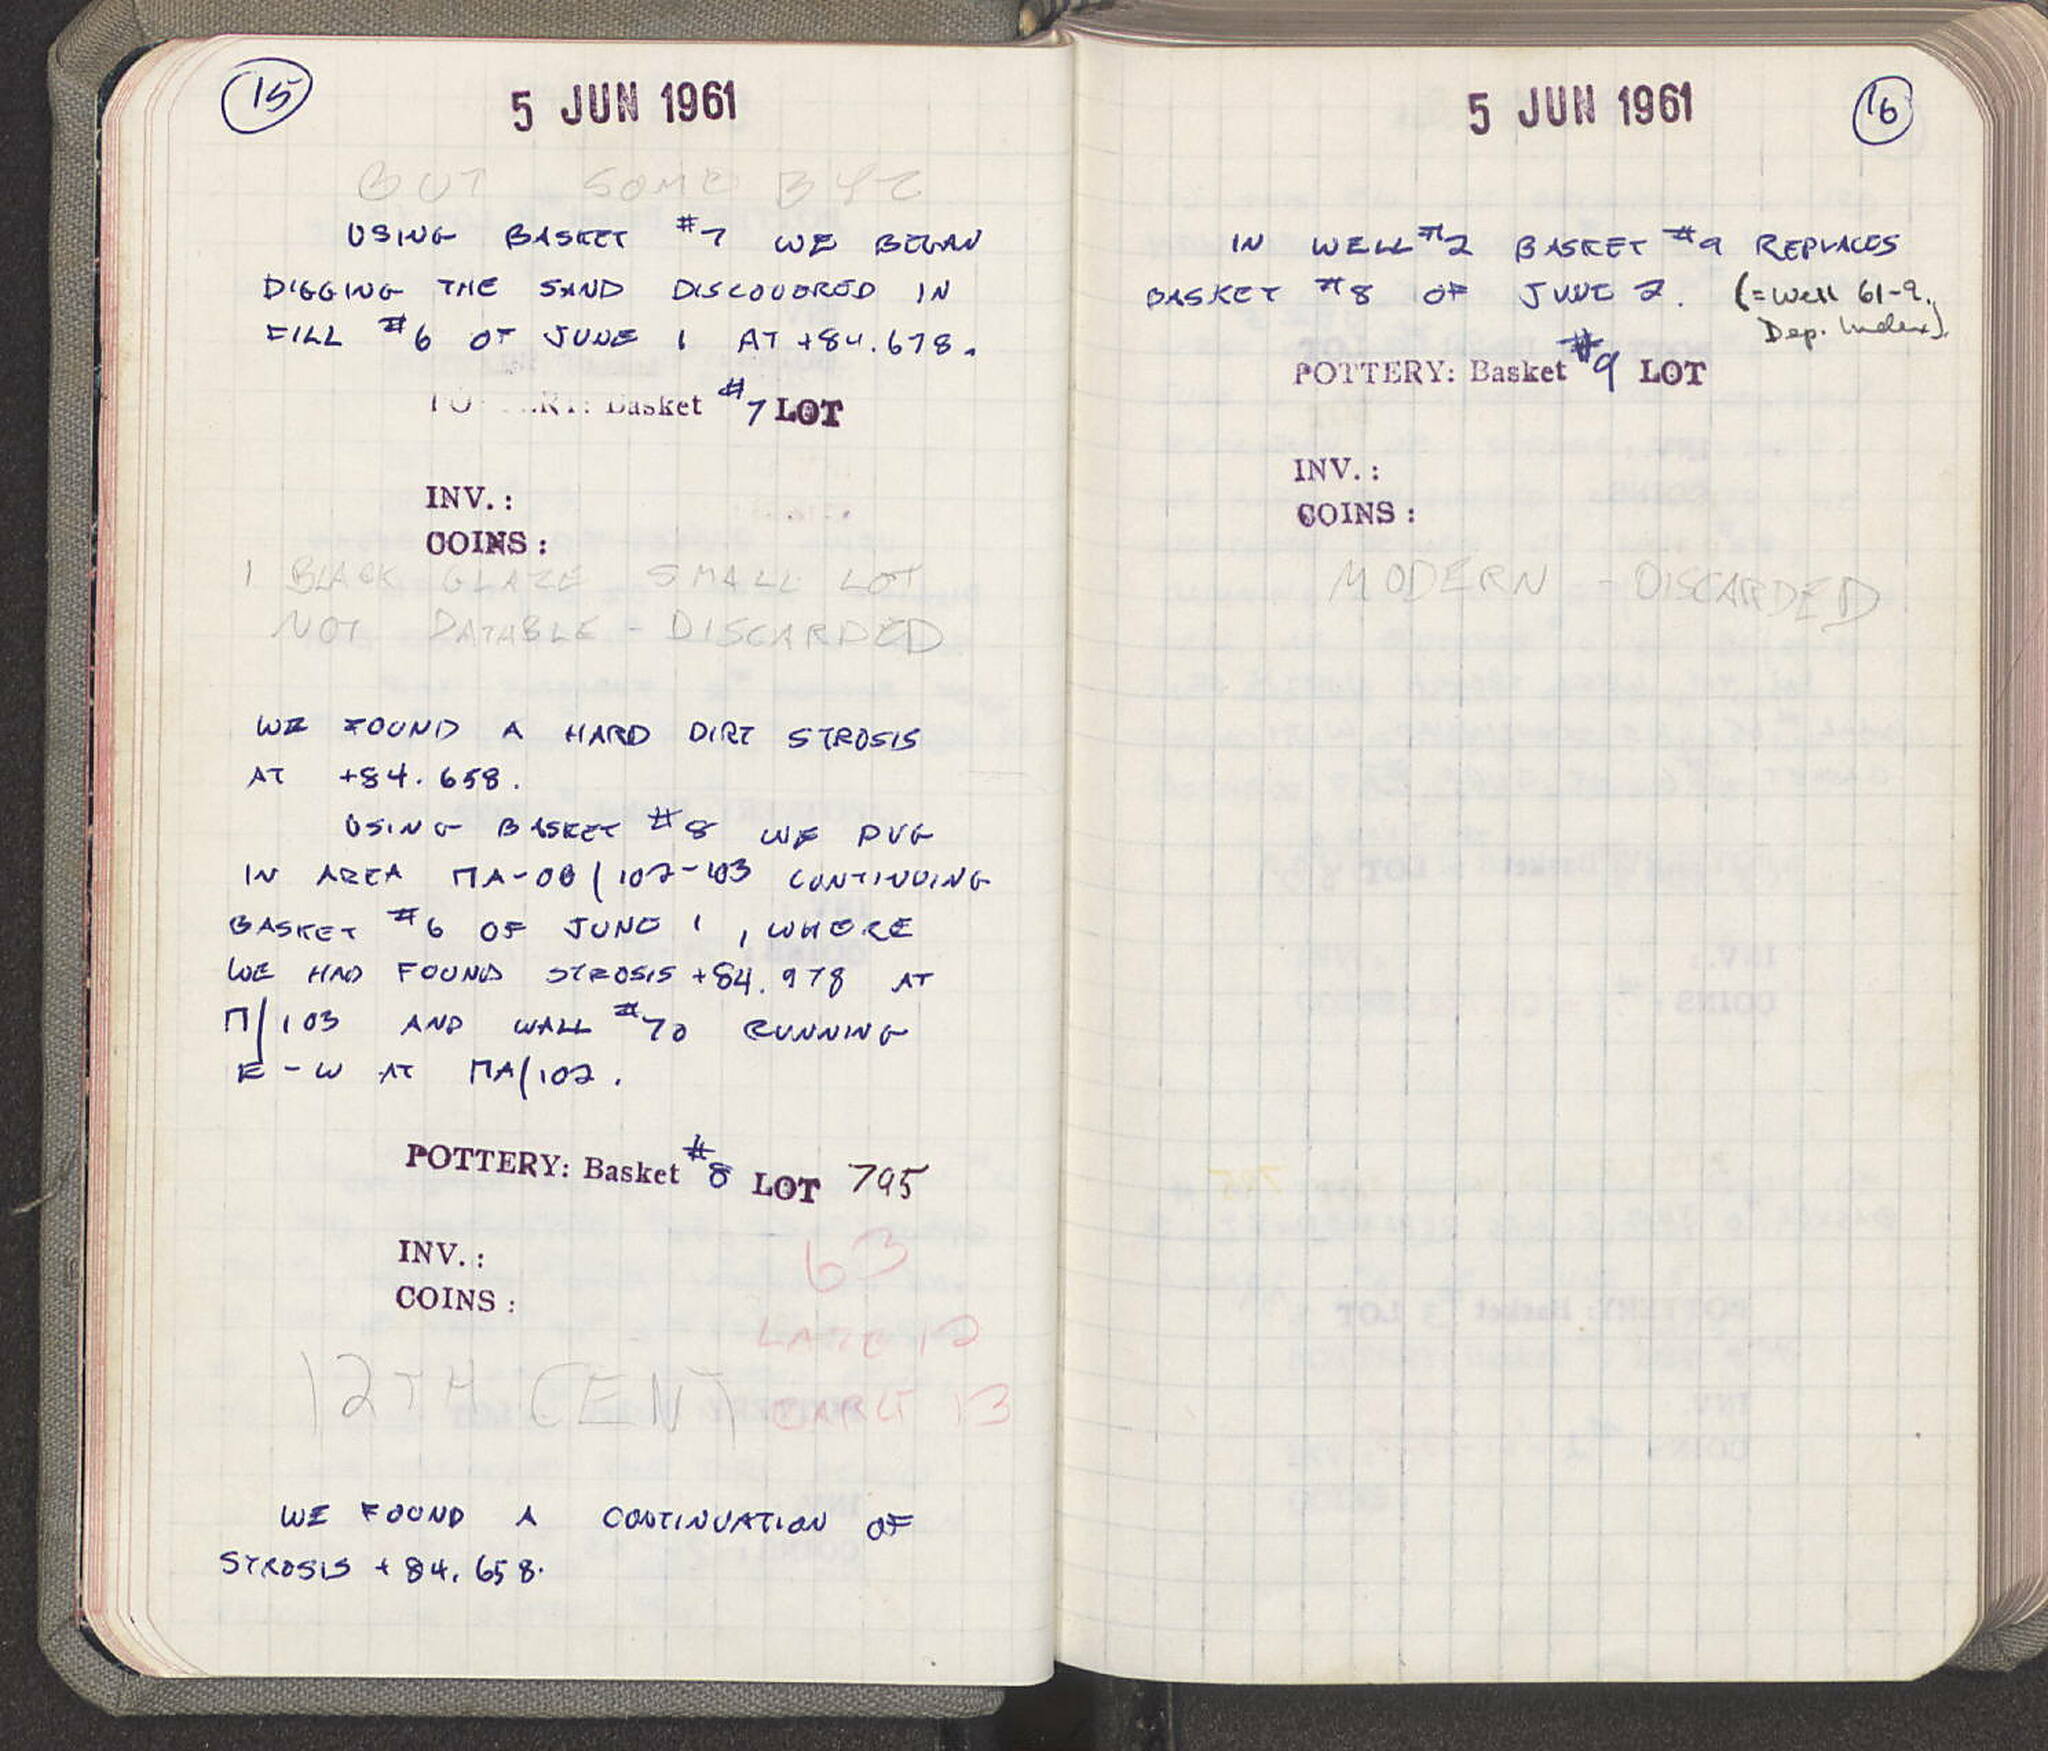 15
5 JUN 1961
BUT SOME BYZ
USING BASKET #7 WE BEGAN
DIGGING THE SAND DISCOVERED IN
FILL #6 OF JUNE 1 AT +84.678.
POTTERY: Basket #7 LOT
INV.:
COINS:
1 BLACK GLAZE SMALL LOT
NOT DATABLE - DISCARDED
WE FOUND A HARD DIRT STROSIS
AT +84.658.
USING BASKET #8 WE DUG
IN AREA ΠA-OB/102-103 CONTINUING
BASKET #6 OF JUNE 1, WHERE
WE HAD FOUND STROSIS +84.978 AT
Π/103 AND WALL #70 RUNNING
E-W AT ΠA/102.
POTTERY: Basket #8 LOT 795
INV.:
63
COINS:
LATE 12
12TH CENT EARLY 13
WE FOUND A CONTINUATION OF
STROSIS +84.658.
5 JUN 1961
16
IN WELL #2 BASKET #9 REPLACES
BASKET #8 OF JUNE 2. (=Well 61-9,
Dep. Index).
POTTERY: Basket #9 LOT
INV.:
COINS:
MODERN - DISCARDED